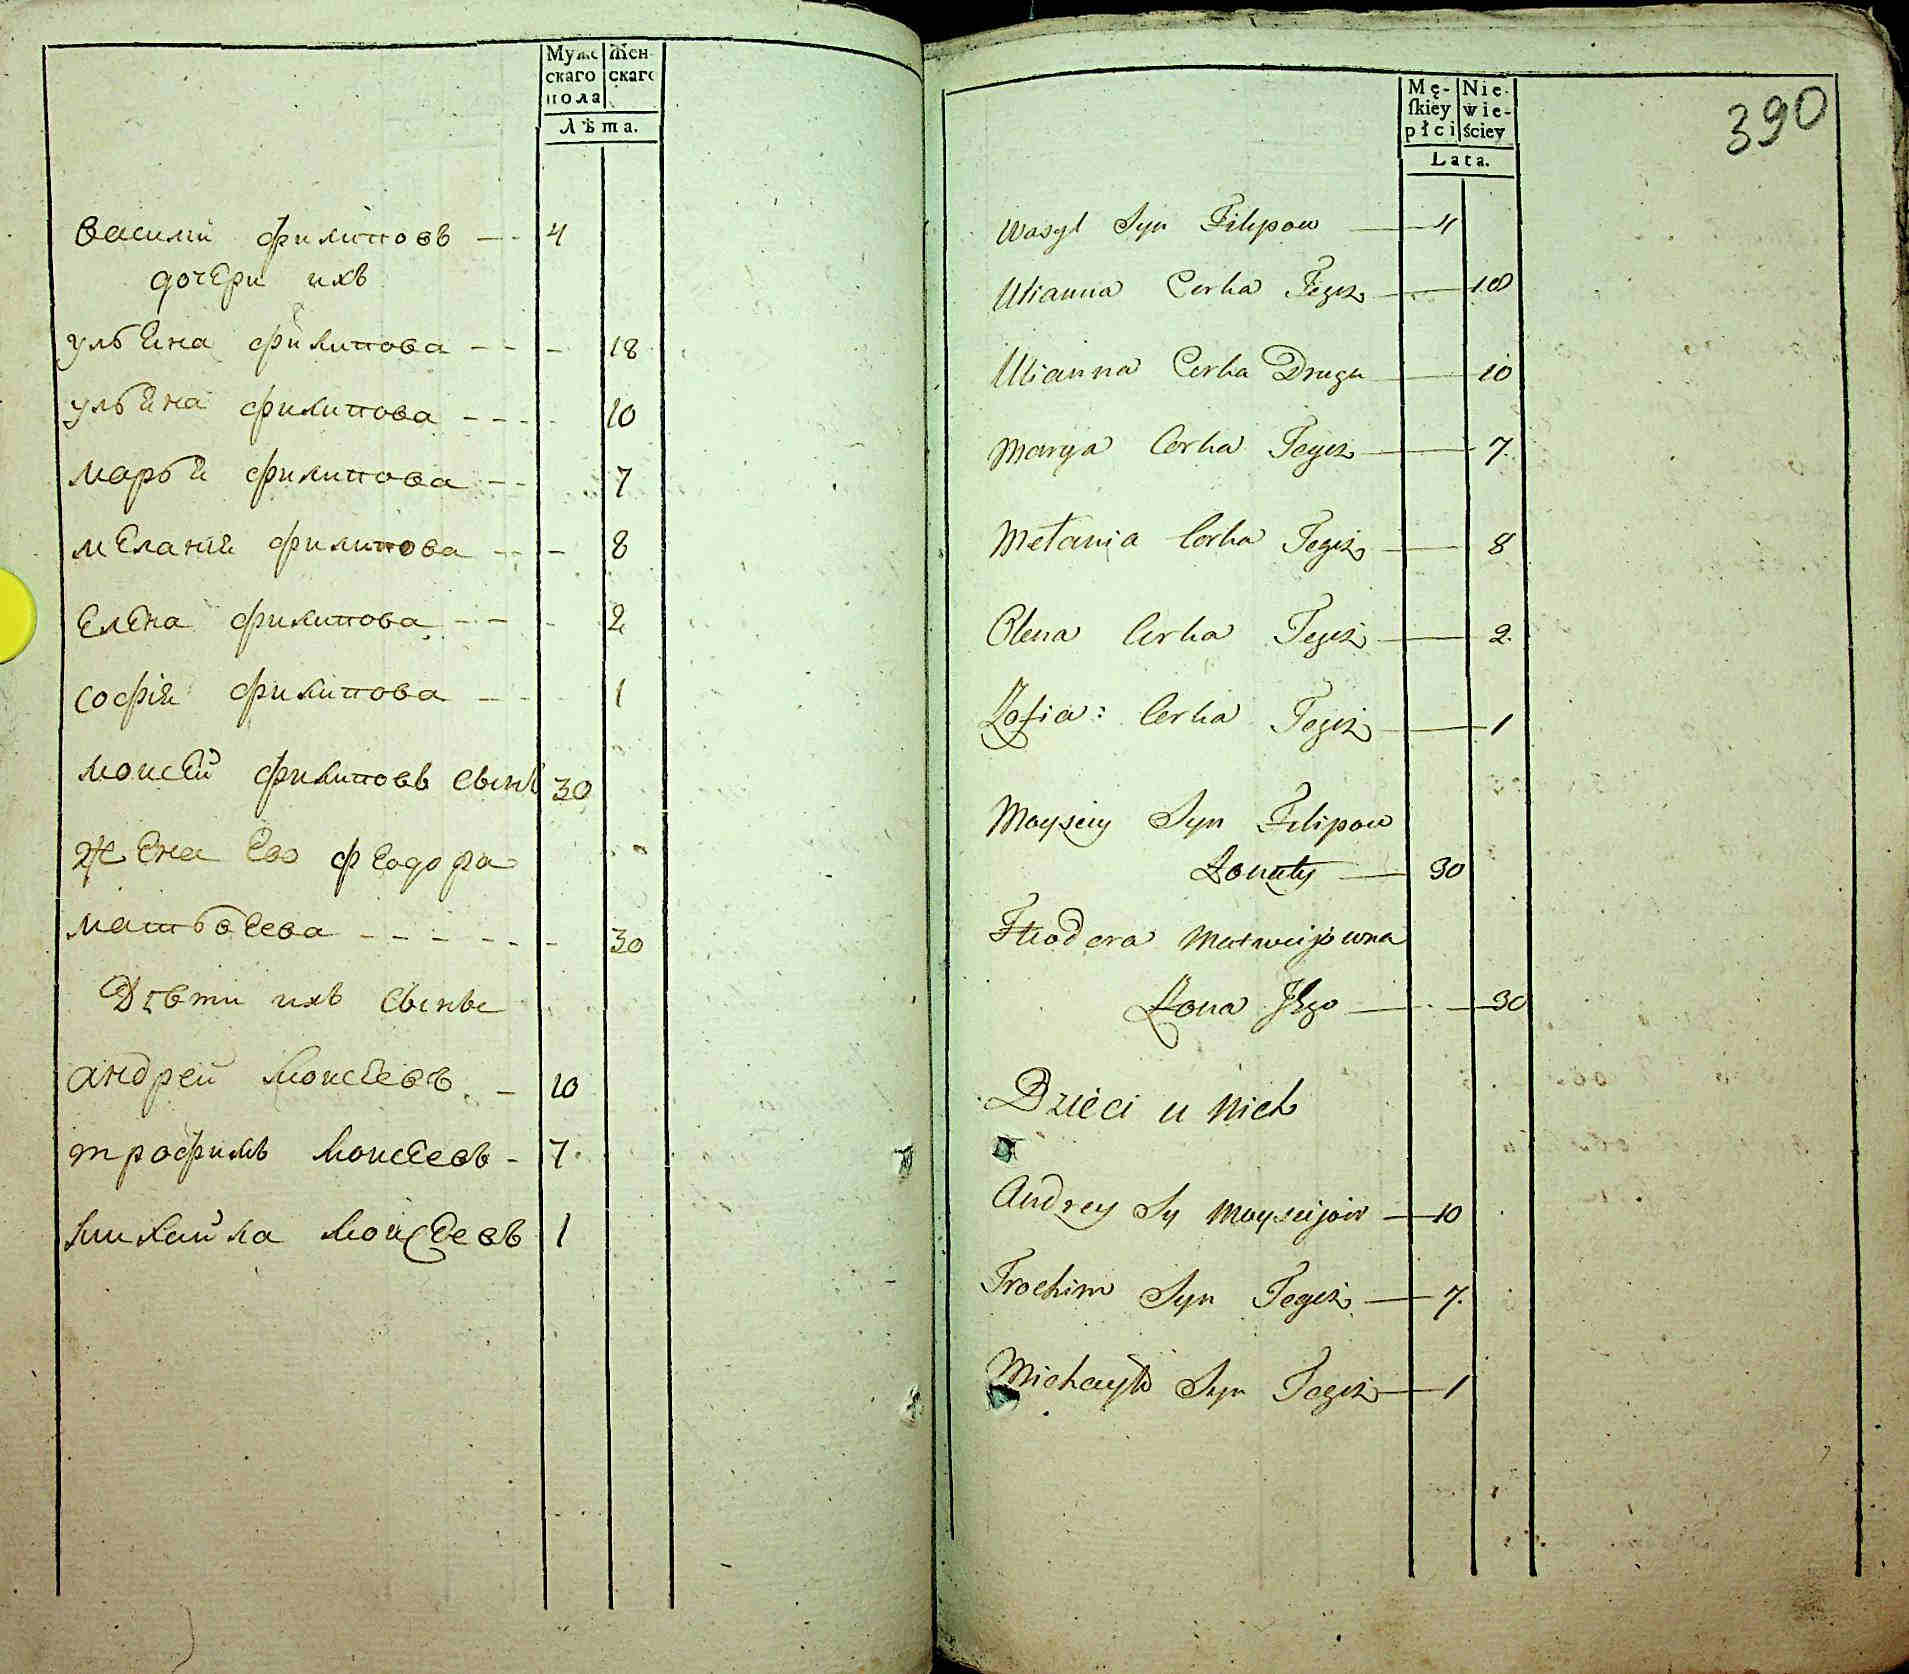 Муже Жен-
скаго скаго
пола
Лѣта.
василий филиповъ — - 4
дочери ихъ
ульяна филипова - - - 18
ульяна филипова - - - 10
марья филипова - - 7
мелания филипова - - - 8
елена филипова - - - 2
софія филипова - - 1
моисей филиповъ сынъ 30
жена ево феодора
матьвеева - - - - - - 30
Дѣти ихъ сыны
андрей моисеевъ - 10
трофимъ моисеевъ - 7
михайла моисеевъ 1
390
Mę- Nie-
ſkiey wie-
płci ściey
Lata.
Wasyl Syn Filipow — 4
Ulianna Corka Tegiż — 18
Ulianna Corka Druga — 10
Marya Corka Tegiż — 7.
Mełania Corka Tegiż — 8
Olena Corka Tegiż — 2.
Zofia: Corka Tegiż — 1
Moysiey Syn Filipow
Żonaty — 30
Fheodora Matweijowna
Żona Jego — 30
Dzieci u Nich
Andrey Sy Moyseijow — 10
Trochim Syn Tegiż — 7.
Michayło Syn Tegiż — 1